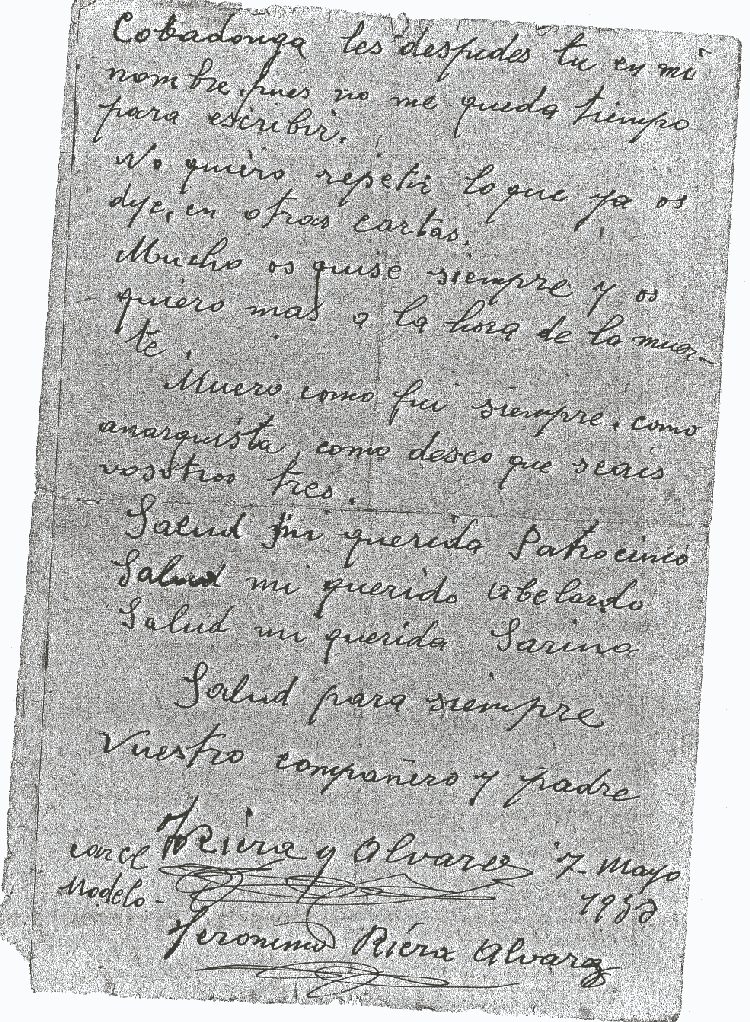 Cobadonga les despides tu en mi
nombre, pues no me queda tiempo
para escribir.
No quiero repetir lo que ya os
dije, en otras cartas.
Mucho os quise siempre y os
quiero mas a la hora de la muer-
te.
Muero como fui siempre, como
anarquista, como deseo que seais
vosotros tres.
Salud mi querida Patrocinio
Salud mi querido Abelardo
Salud mi querida Sarina
Salud para siempre
Vuestro compañero y padre
Riera y Alvarez 7- Mayo
carcel
Modelo-
Jeronimo Riera Alvarez